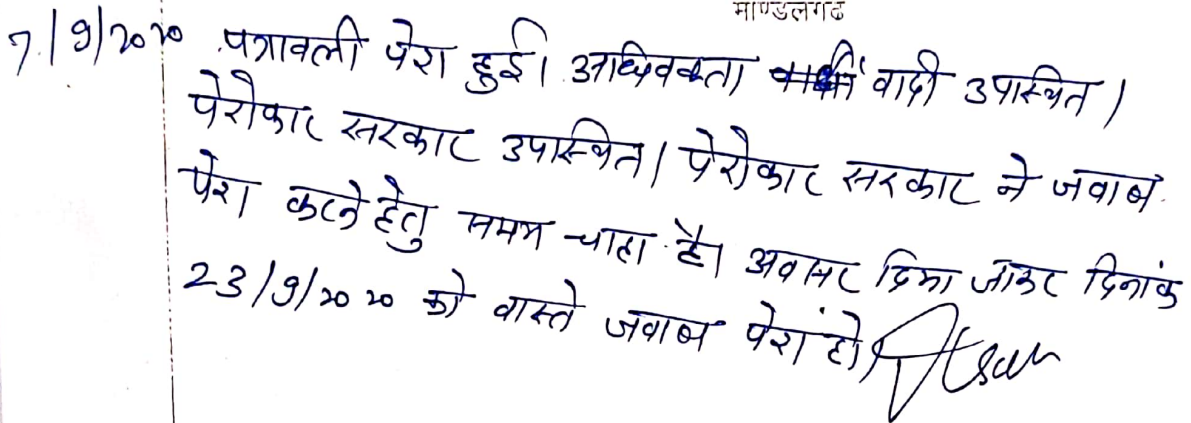 माण्डलगढ
7/9/2020 पत्रावली पेश हुई। अधिवक्ता वादी उपस्थित।
पेरोकार सरकार उपस्थित। पेरोकार सरकार ने जवाब
पेश करने हेतु समय चाहा है। अवसर दिया जाकर दिनांक
23/9/2020 को वास्ते जवाब पेश हो।